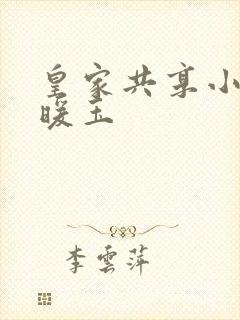 皇家共享小
暖玉
李雲萍